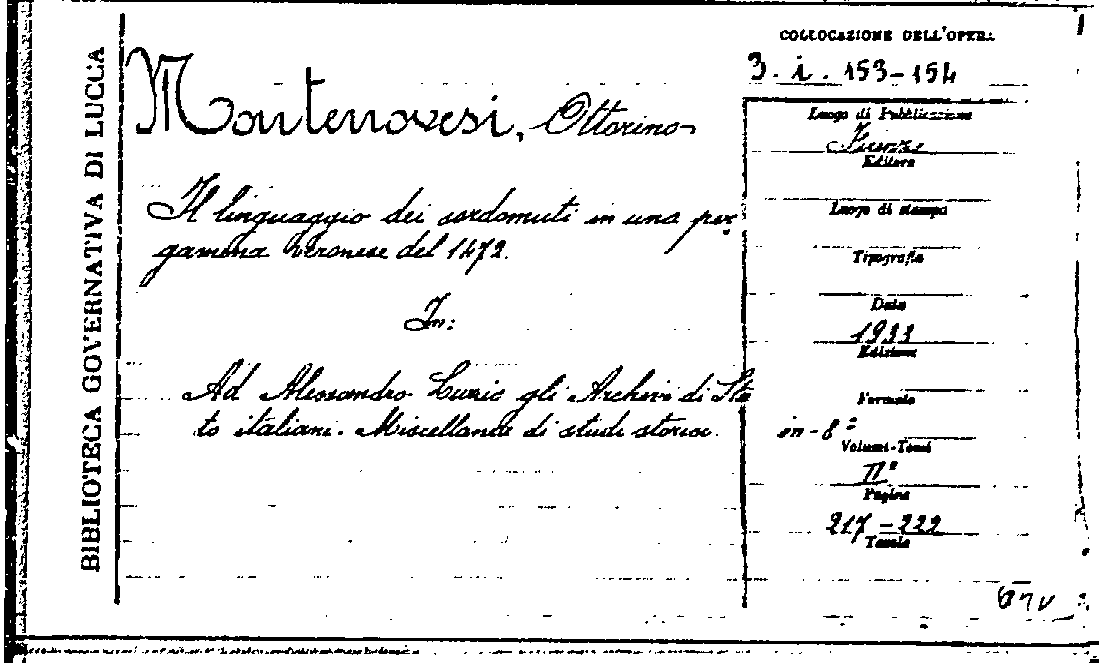 BIBLIOTECA GOVERNATIVA DI LUCCA
Montenovesi, Ottorino
Il linguaggio dei sordomuti in una per-
gamena veronese del 1472.
In:
Ad Alessandro Luzio gli Archivi di Sta
to italiani. Miscellanea di studi storici.
COLLOCAZIONE DELL'OPERA
3. i. 153-154
Luogo di Pubblicazione
Firenze
Editore
Luogo di stampa
Tipografia
Data
1933
Edizione
Formato
in-8°
Volumi-Tomi
II°
Pagine
217-222
Tavole